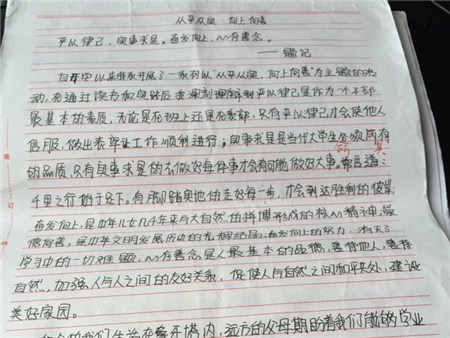 从严从实·向上向善
严以律己,实事求是。奋发向上,心存善念。
——题记
自开学以来我系开展了一系列以“从严从实,向上向善”为主题的活
动,在通过读书和实践后我深刻理解到严以律己是作为一个干部
最基本的素质,无论是在班上还是在系部,只有严以律己才会使他人
信服,做出表率让工作顺利进行;实事求是是当代大学生必须所有
的品质,只有实事求是的去做好每件事才会有可能做好大事。常言道:
千里之行始于足下。有脚踏实地的走好每一步,才会到达胜利的彼岸;
奋发向上,是中华儿女几千年来与大自然的拼搏形成的核心精神,
是中华文明发展历史的光辉结晶,奋发向上的努力,
学习中的一切难题,心存善念是人最基本的品德,善待他人,善待
自然。加强人与人之间的友好关系,促使人与自然之间和平共处,建设
美好家园。
我们生活在象牙塔内,远方的父母期盼着我们能够学业